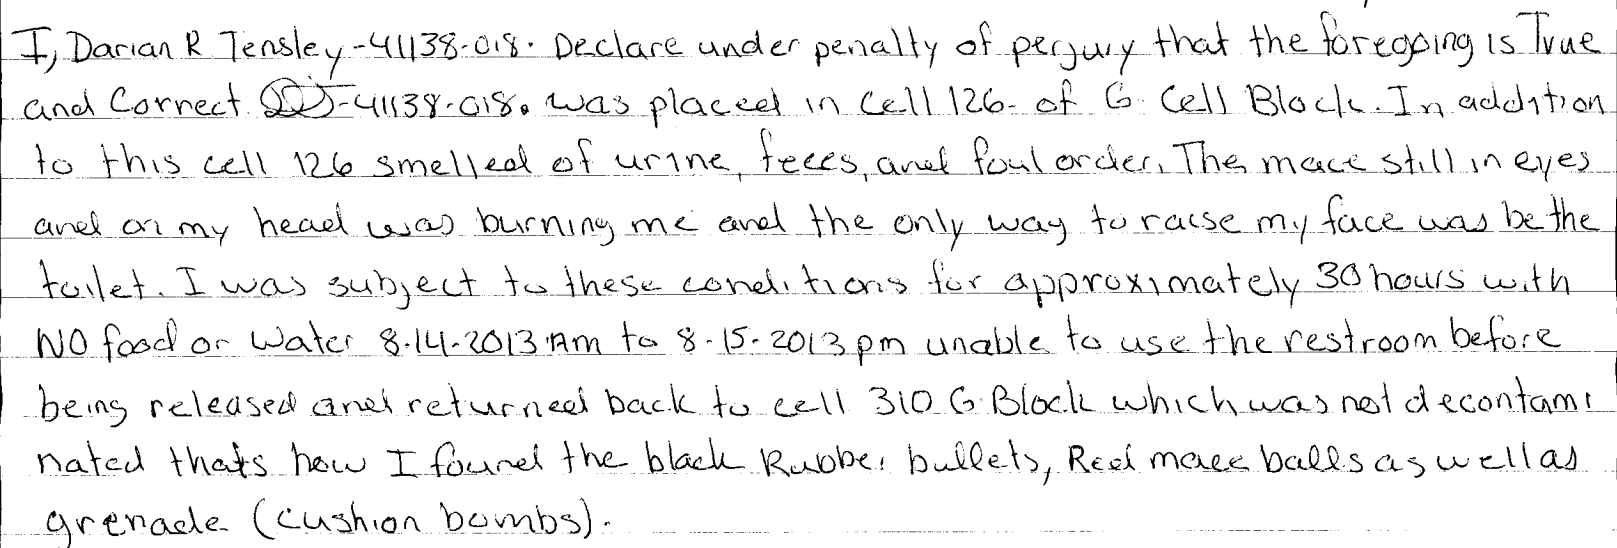 I, Darian R Tensley-41138-018. Declare under penalty of perjury that the foregoing is True
and Correct. -41138-018. was placed in cell 126- of G. Cell Block. In addition
to this cell 126 smelled of urine, feces, and foul order. The mace still in eyes
and on my head was burning me and the only way to raise my face was be the
toilet. I was subject to these conditions for approximately 30 hours with
NO food or water 8-14-2013 Am to 8-15-2013 pm unable to use the restroom before
being released and returned back to cell 310 G Block which was not decontami
nated thats how I found the black Rubber bullets, Red mace balls as well as
grenade (cushion bombs).